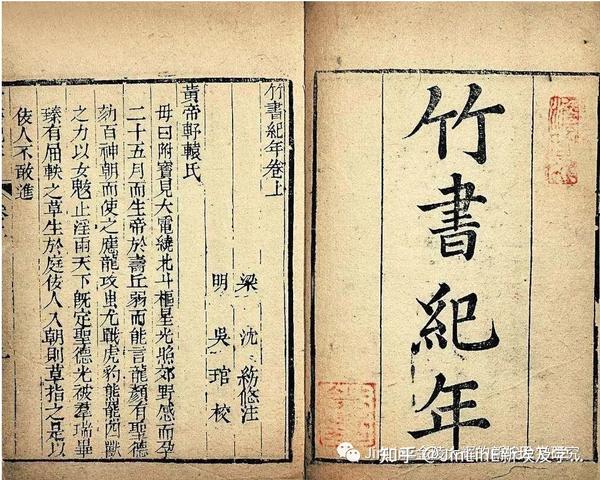 竹書紀年
竹書紀年卷上
梁 沈 約附注
明 吳 琯校
黃帝軒轅氏
母曰附寶見大電繞北斗樞星光照郊野感而孕
二十五月而生帝於壽丘弱而能言龍顏有聖德
劾百神朝而使之應龍攻蚩尤戰虎豹熊羆四獸
之力以女魃止淫雨天下旣定聖德光被羣瑞畢
臻有屈軼之草生於庭佞人入朝則草指之是以
佞人不敢進
知乎 @JinLinE新埃及学